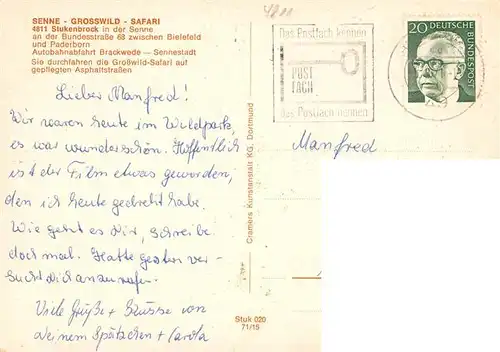 SENNE - GROSSWILD - SAFARI
4811 Stukenbrock in der Senne
an der Bundesstraße 68 zwischen Bielefeld
und Paderborn
Autobahnabfahrt Brackwede — Sennestadt
Sie durchfahren die Großwild-Safari auf
gepflegten Asphaltstraßen
Lieber Manfred!
Wir waren heute im Wildpark,
es war wunderschön. Hoffentlich
ist der Film etwas geworden,
den ich heute gedreht habe.
Wie geht es Dir, schreibe
doch mal. Hatte gestern ver-
sucht Dich anzurufen.
Viele Grüße + Küsse von
Deinem Spätzchen + Carola
Cramers Kunstanstalt KG, Dortmund
Stuk 020
71/15
4811
Das Postfach kennen
POST
FACH
das Postfach nennen
20
DEUTSCHE
BUNDESPOST
Manfred